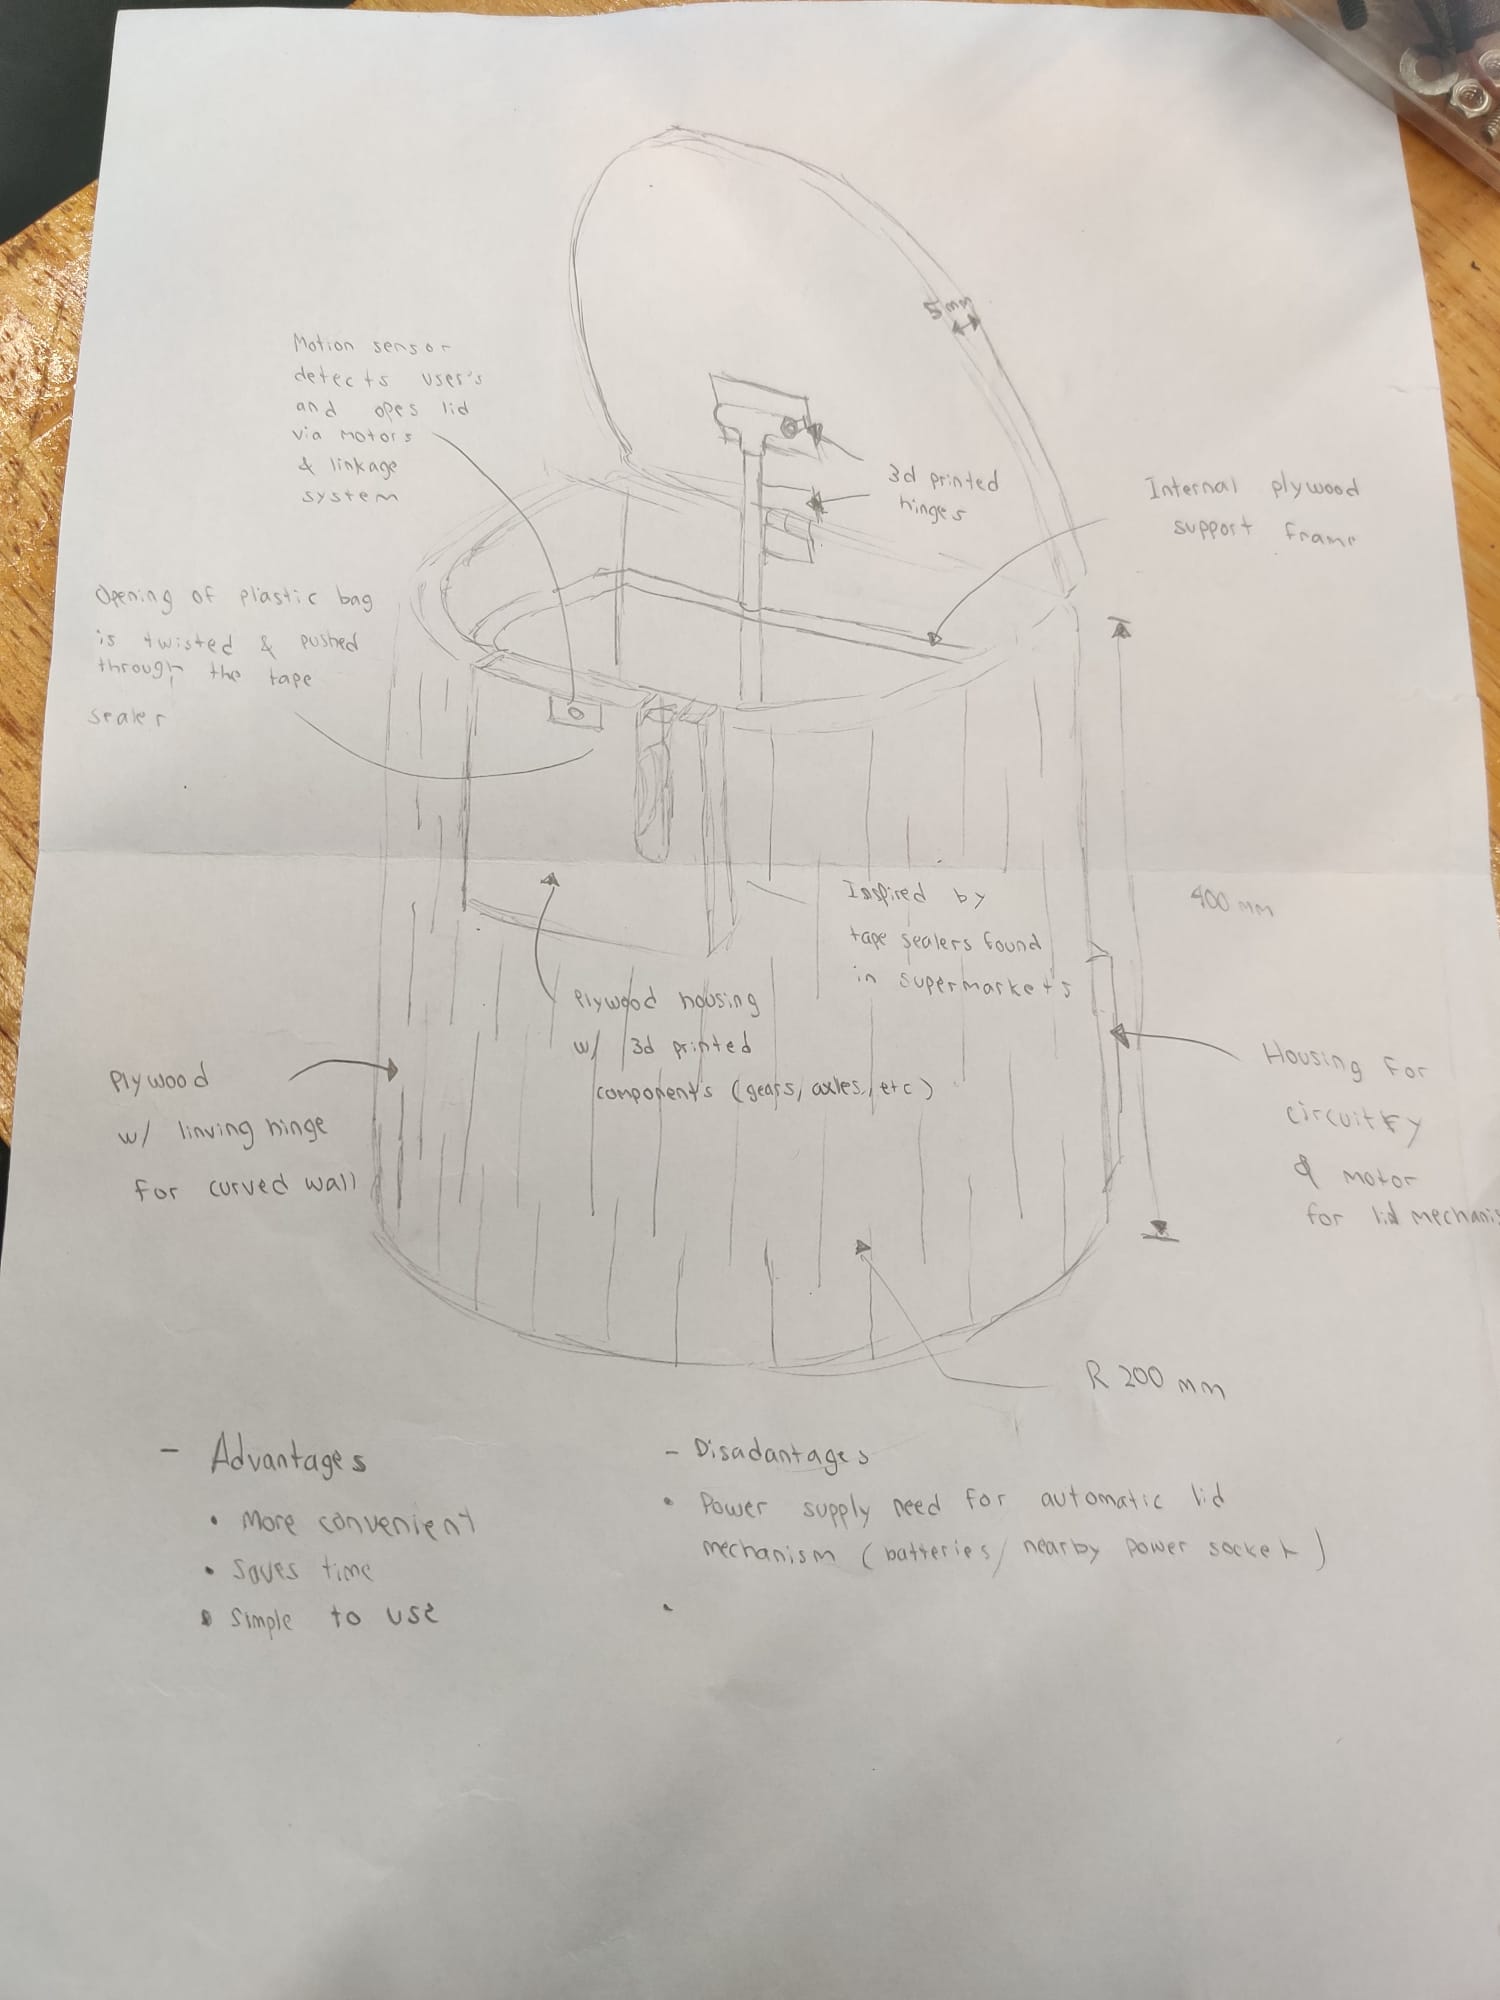 5 mm
Motion sensor
detects user's
and opes lid
via motors
& linkage
system
3d printed
hinges
Internal plywood
support frame
Opening of plastic bag
is twisted & pushed
through the tape
sealer
400 mm
Inspired by
tape sealers found
in supermarkets
Plywood housing
w/ 3d printed
components (gears, axles, etc)
Plywood
w/ linving hinge
for curved wall
Housing for
circuitry
& motor
for lid mechanis
R 200 mm
- Advantages
• More convenient
• Saves time
• Simple to use
- Disadantages
• Power supply need for automatic lid
mechanism (batteries/ nearby power socket)
•